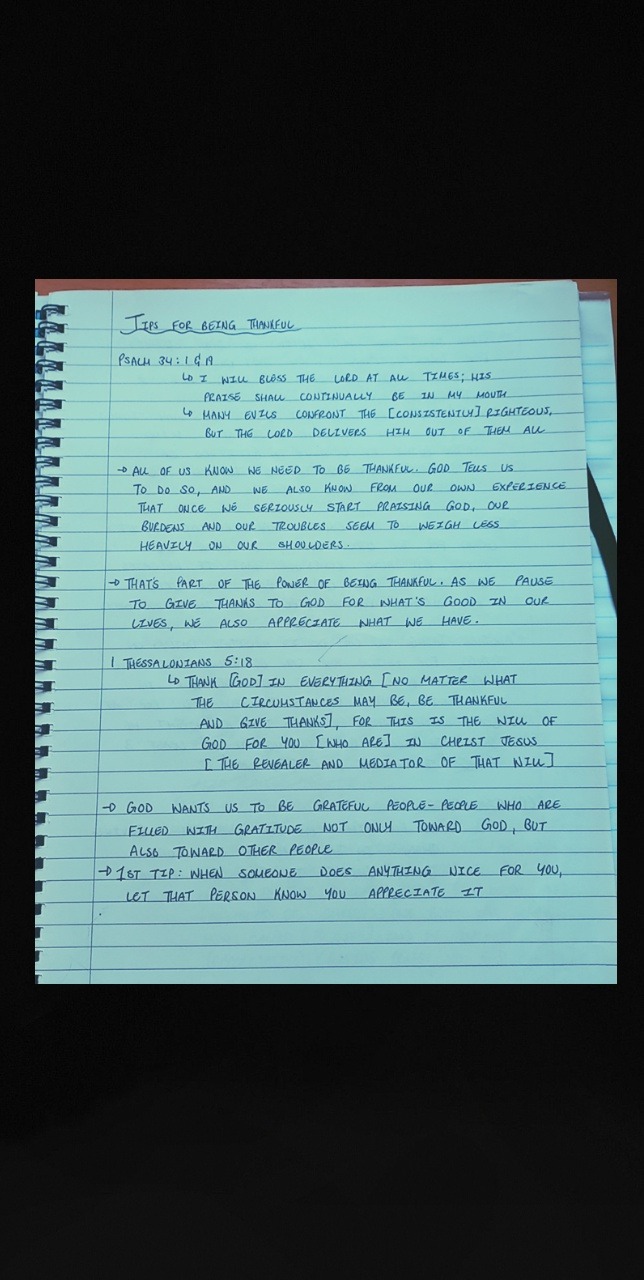 TIPS FOR BEING THANKFUL
PSALM 34:1 & 19
↳ I WILL BLESS THE LORD AT ALL TIMES; HIS
PRAISE SHALL CONTINUALLY BE IN MY MOUTH
↳ MANY EVILS CONFRONT THE [CONSISTENTLY] RIGHTEOUS,
BUT THE LORD DELIVERS HIM OUT OF THEM ALL
→ ALL OF US KNOW WE NEED TO BE THANKFUL. GOD TELLS US
TO DO SO, AND WE ALSO KNOW FROM OUR OWN EXPERIENCE
THAT ONCE WE SERIOUSLY START PRAISING GOD, OUR
BURDENS AND OUR TROUBLES SEEM TO WEIGH LESS
HEAVILY ON OUR SHOULDERS.
→ THAT'S PART OF THE POWER OF BEING THANKFUL. AS WE PAUSE
TO GIVE THANKS TO GOD FOR WHAT'S GOOD IN OUR
LIVES, WE ALSO APPRECIATE WHAT WE HAVE.
1 THESSALONIANS 5:18
↳ THANK [GOD] IN EVERYTHING [NO MATTER WHAT
THE CIRCUMSTANCES MAY BE, BE THANKFUL
AND GIVE THANKS], FOR THIS IS THE WILL OF
GOD FOR YOU [WHO ARE] IN CHRIST JESUS
[THE REVEALER AND MEDIATOR OF THAT WILL]
→ GOD WANTS US TO BE GRATEFUL PEOPLE - PEOPLE WHO ARE
FILLED WITH GRATITUDE NOT ONLY TOWARD GOD, BUT
ALSO TOWARD OTHER PEOPLE
→ 1ST TIP: WHEN SOMEONE DOES ANYTHING NICE FOR YOU,
LET THAT PERSON KNOW YOU APPRECIATE IT